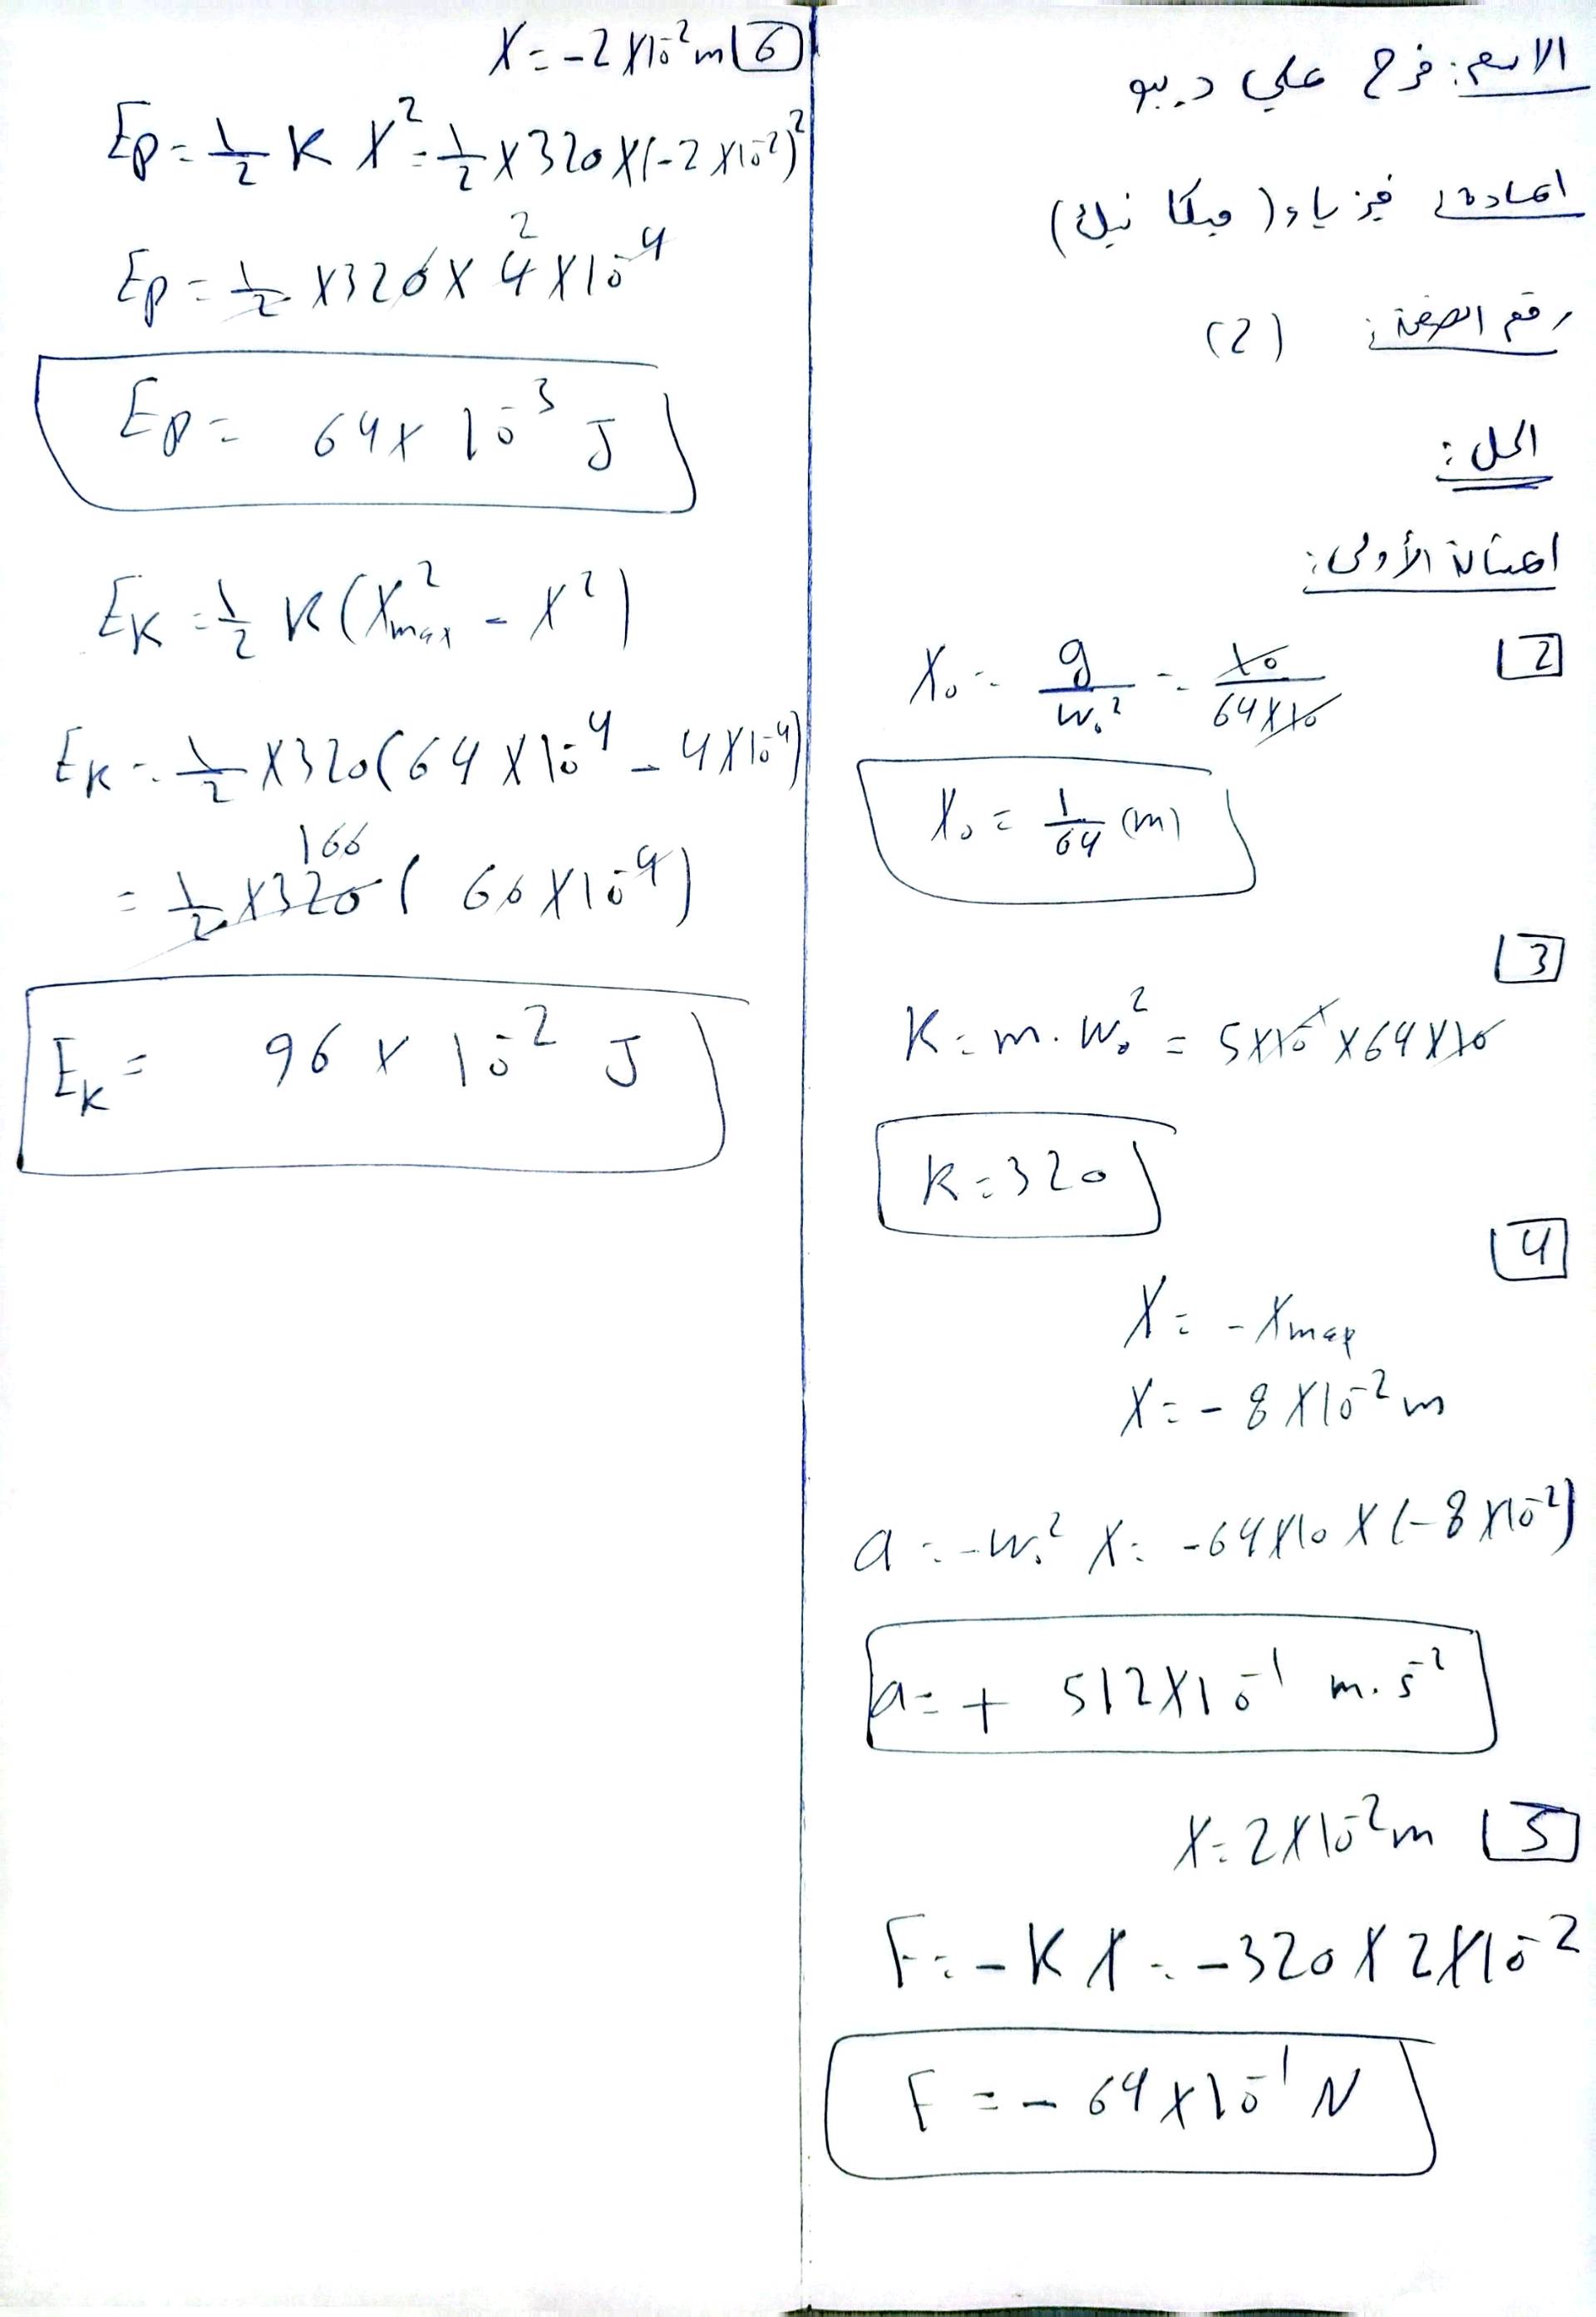 الاسم: فرح علي ديبو
المادة: فيزياء (ميكانيك)
رقم الصفحة: (2)
الحل:
المسألة الأولى:
2
X₀ = g/w₀² = 10/64×10
X₀ = 1/64 (m)
3
K = m . w₀² = 5×10⁻¹ × 64×10
K = 320
4
X = -Xmax
X = -8 × 10⁻² m
a = -w₀² X = -64×10 × (-8 ×10⁻²)
a = + 512×10⁻¹ m.s⁻²
5 X = 2×10⁻² m
F = -K X = -320 × 2×10⁻²
F = - 64×10⁻¹ N
6 X = -2 ×10⁻² m
Ep = 1/2 K X² = 1/2 × 320 × (-2 ×10⁻²)²
Ep = 1/2 × 320 × 4 × 10⁻⁴
2
Ep = 64 × 10⁻³ J
EK = 1/2 K (X²max - X²)
EK = 1/2 × 320 (64 × 10⁻⁴ - 4×10⁻⁴)
160
= 1/2 × 320 ( 60 × 10⁻⁴)
EK = 96 × 10⁻² J